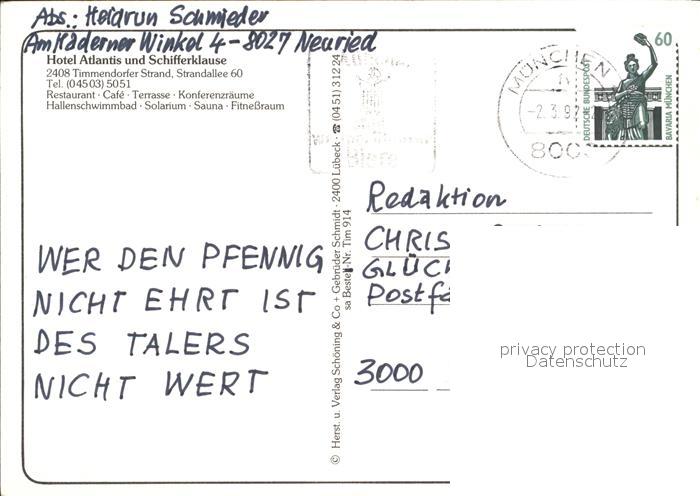 Abs.: Heidrun Schmieder
Am Käderner Winkel 4 - 8027 Neuried
Hotel Atlantis und Schifferklause
2408 Timmendorfer Strand, Strandallee 60
Tel. (04503) 5051
Restaurant · Café · Terrasse · Konferenzräume
Hallenschwimmbad · Solarium · Sauna · Fitneßraum
WER DEN PFENNIG
NICHT EHRT IST
DES TALERS
NICHT WERT
© Herst. u. Verlag Schöning & Co + Gebrüder Schmidt · 2400 Lübeck · ☎ (0451) 31 2 24
Bestell-Nr. Tim 914
MÜNCHEN
-2.3.92
800
60
DEUTSCHE BUNDESPOST
BAVARIA MÜNCHEN
Redaktion
CHRIS
GLÜC
Postfa
3000
privacy protection
Datenschutz